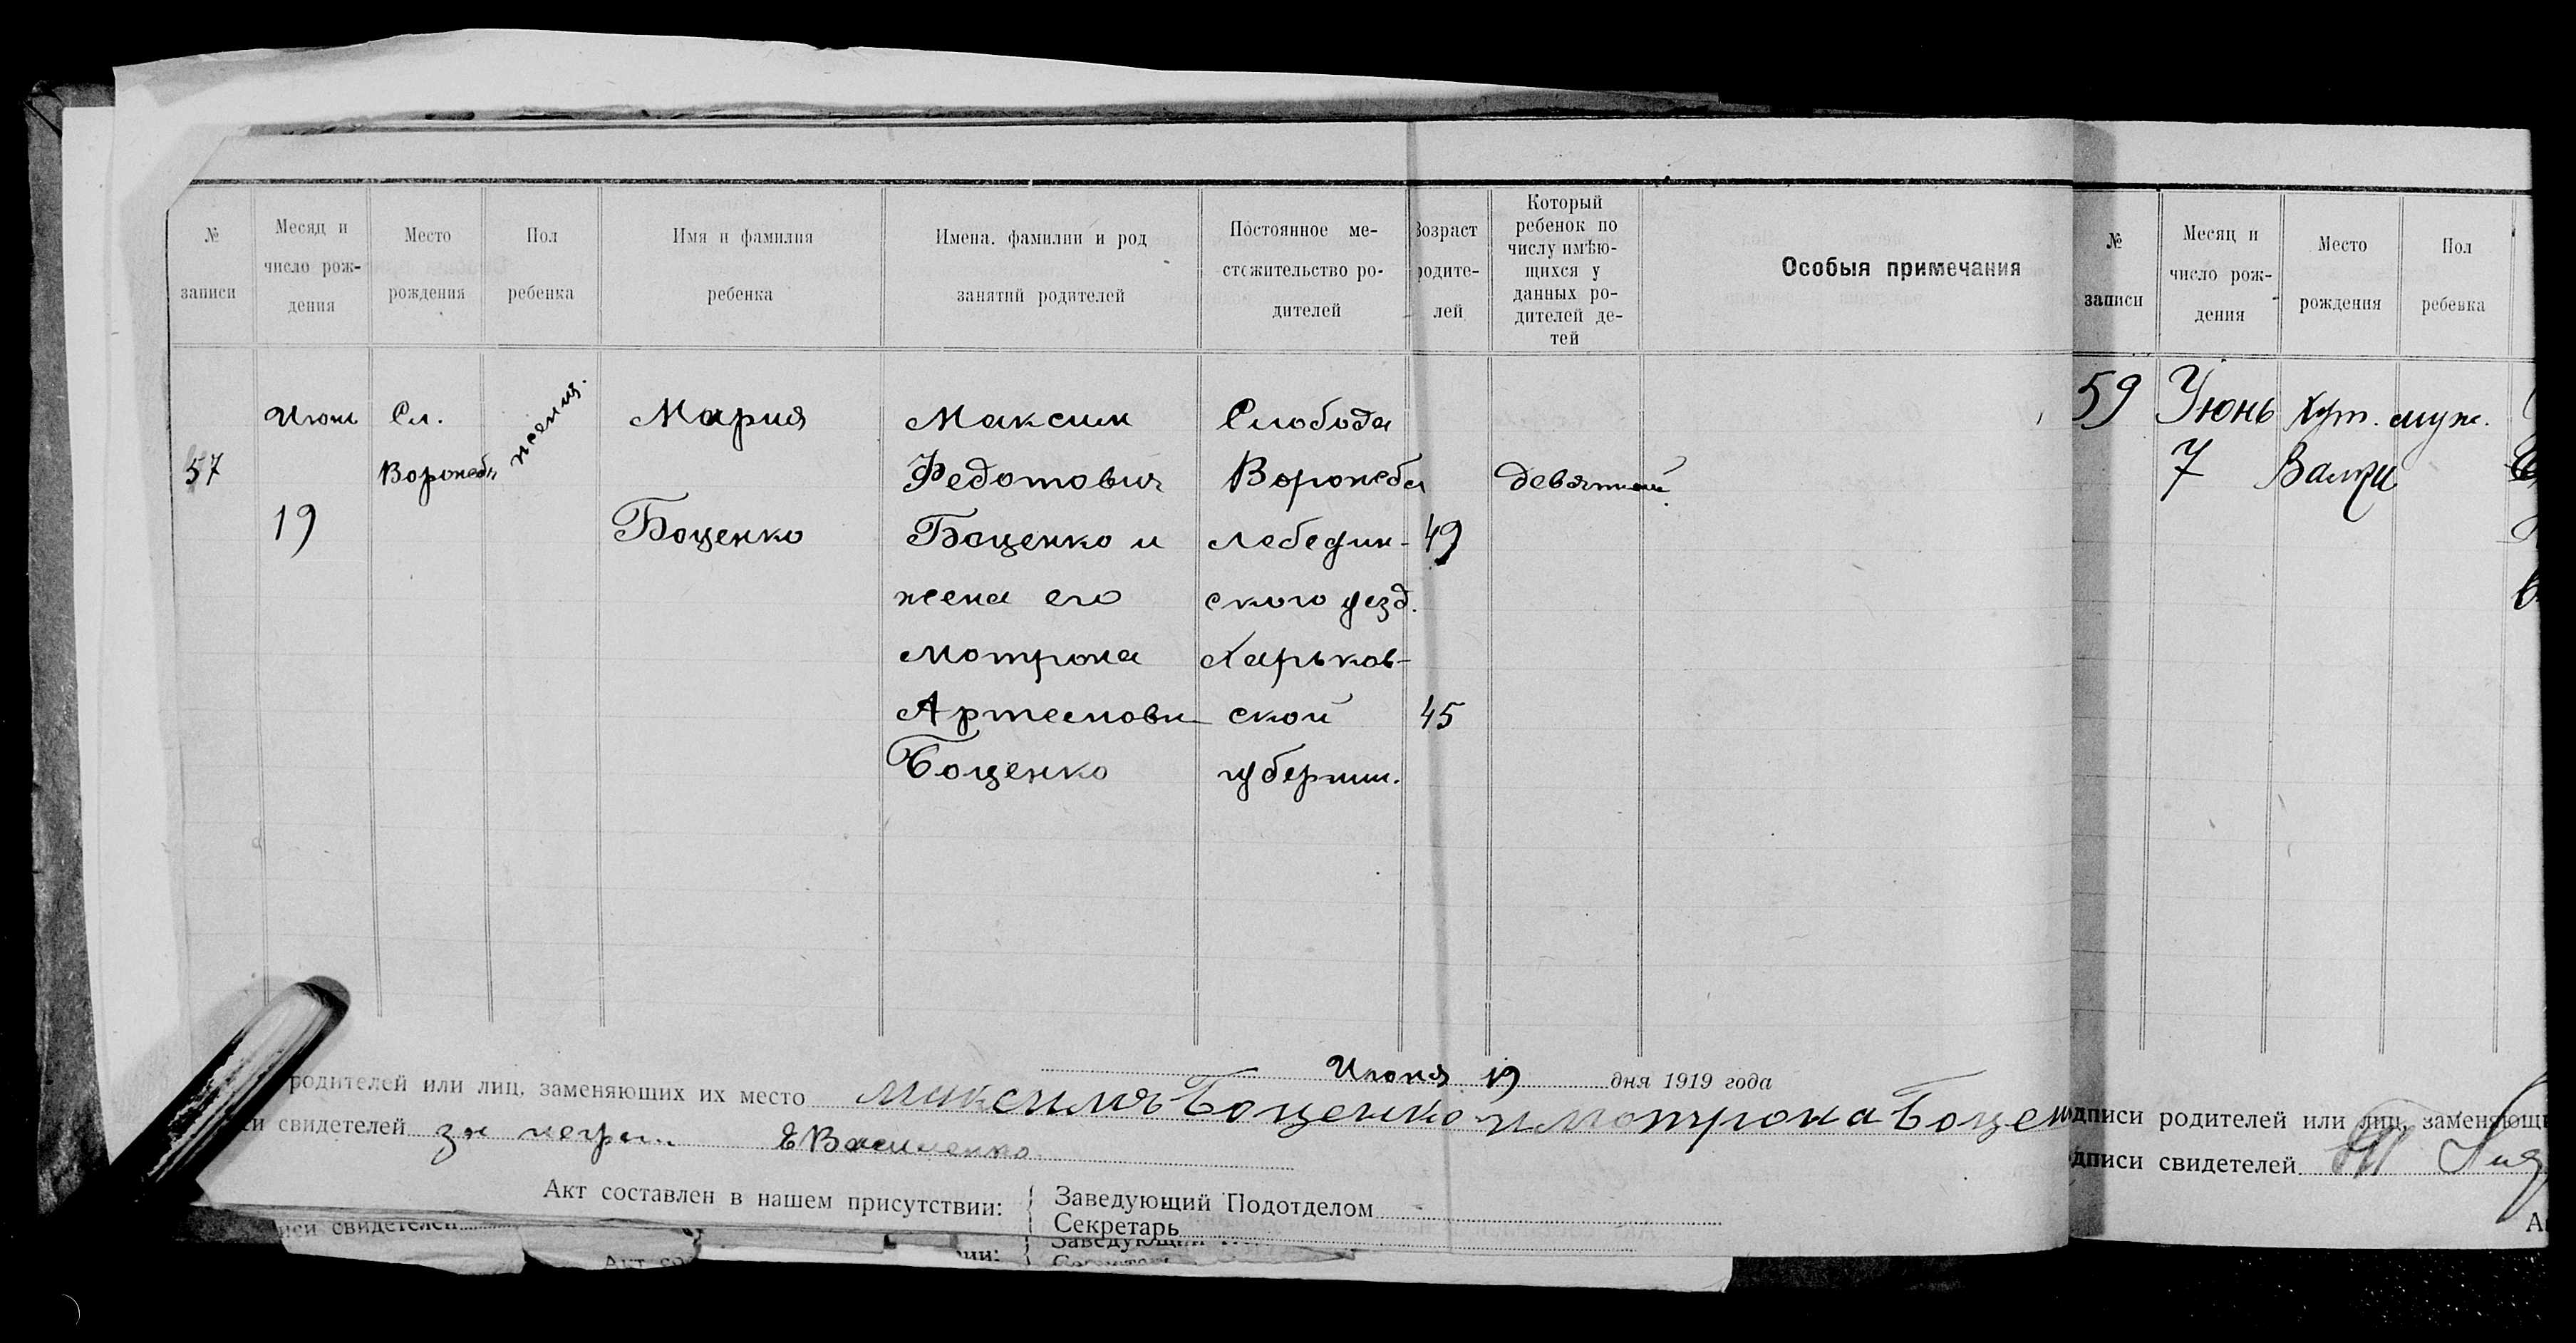 № записи
Месяц и число рождения
Место рождения
Пол ребенка
Имя и фамилия ребенка
Имена. фамилии и род занятий родителей
Постоянное местожительство родителей
Возраст родителей
Который ребенок по числу имѣющихся у данных родителей детей
Особыя примечания
57
Июнь
19
Сл.
Ворожеб
женщ.
Мария
Боценко
Максим
Федотович
Боценко и
жена его
Мотрона
Артемовн
Боценко
Слобода
Ворожеба
Лебедин-
ского уезд.
Харьков-
ской
губернии.
49
45
девятый
Июня 19 дня 1919 года
родителей или лиц, заменяющих их место Максимъ Боценко и Мотрона Боцен
си свидетелей за негр... Василенко
Акт составлен в нашем присутствии:
Заведующий Подотделом
Секретарь
№ записи
Месяц и число рождения
Место рождения
Пол ребенка
59
Июнь
7
Хут.
Валки
муж.
дписи родителей или лиц, заменяющи
дписи свидетелей
А
иси свидетелей
Акт со
нии:
Заведующий